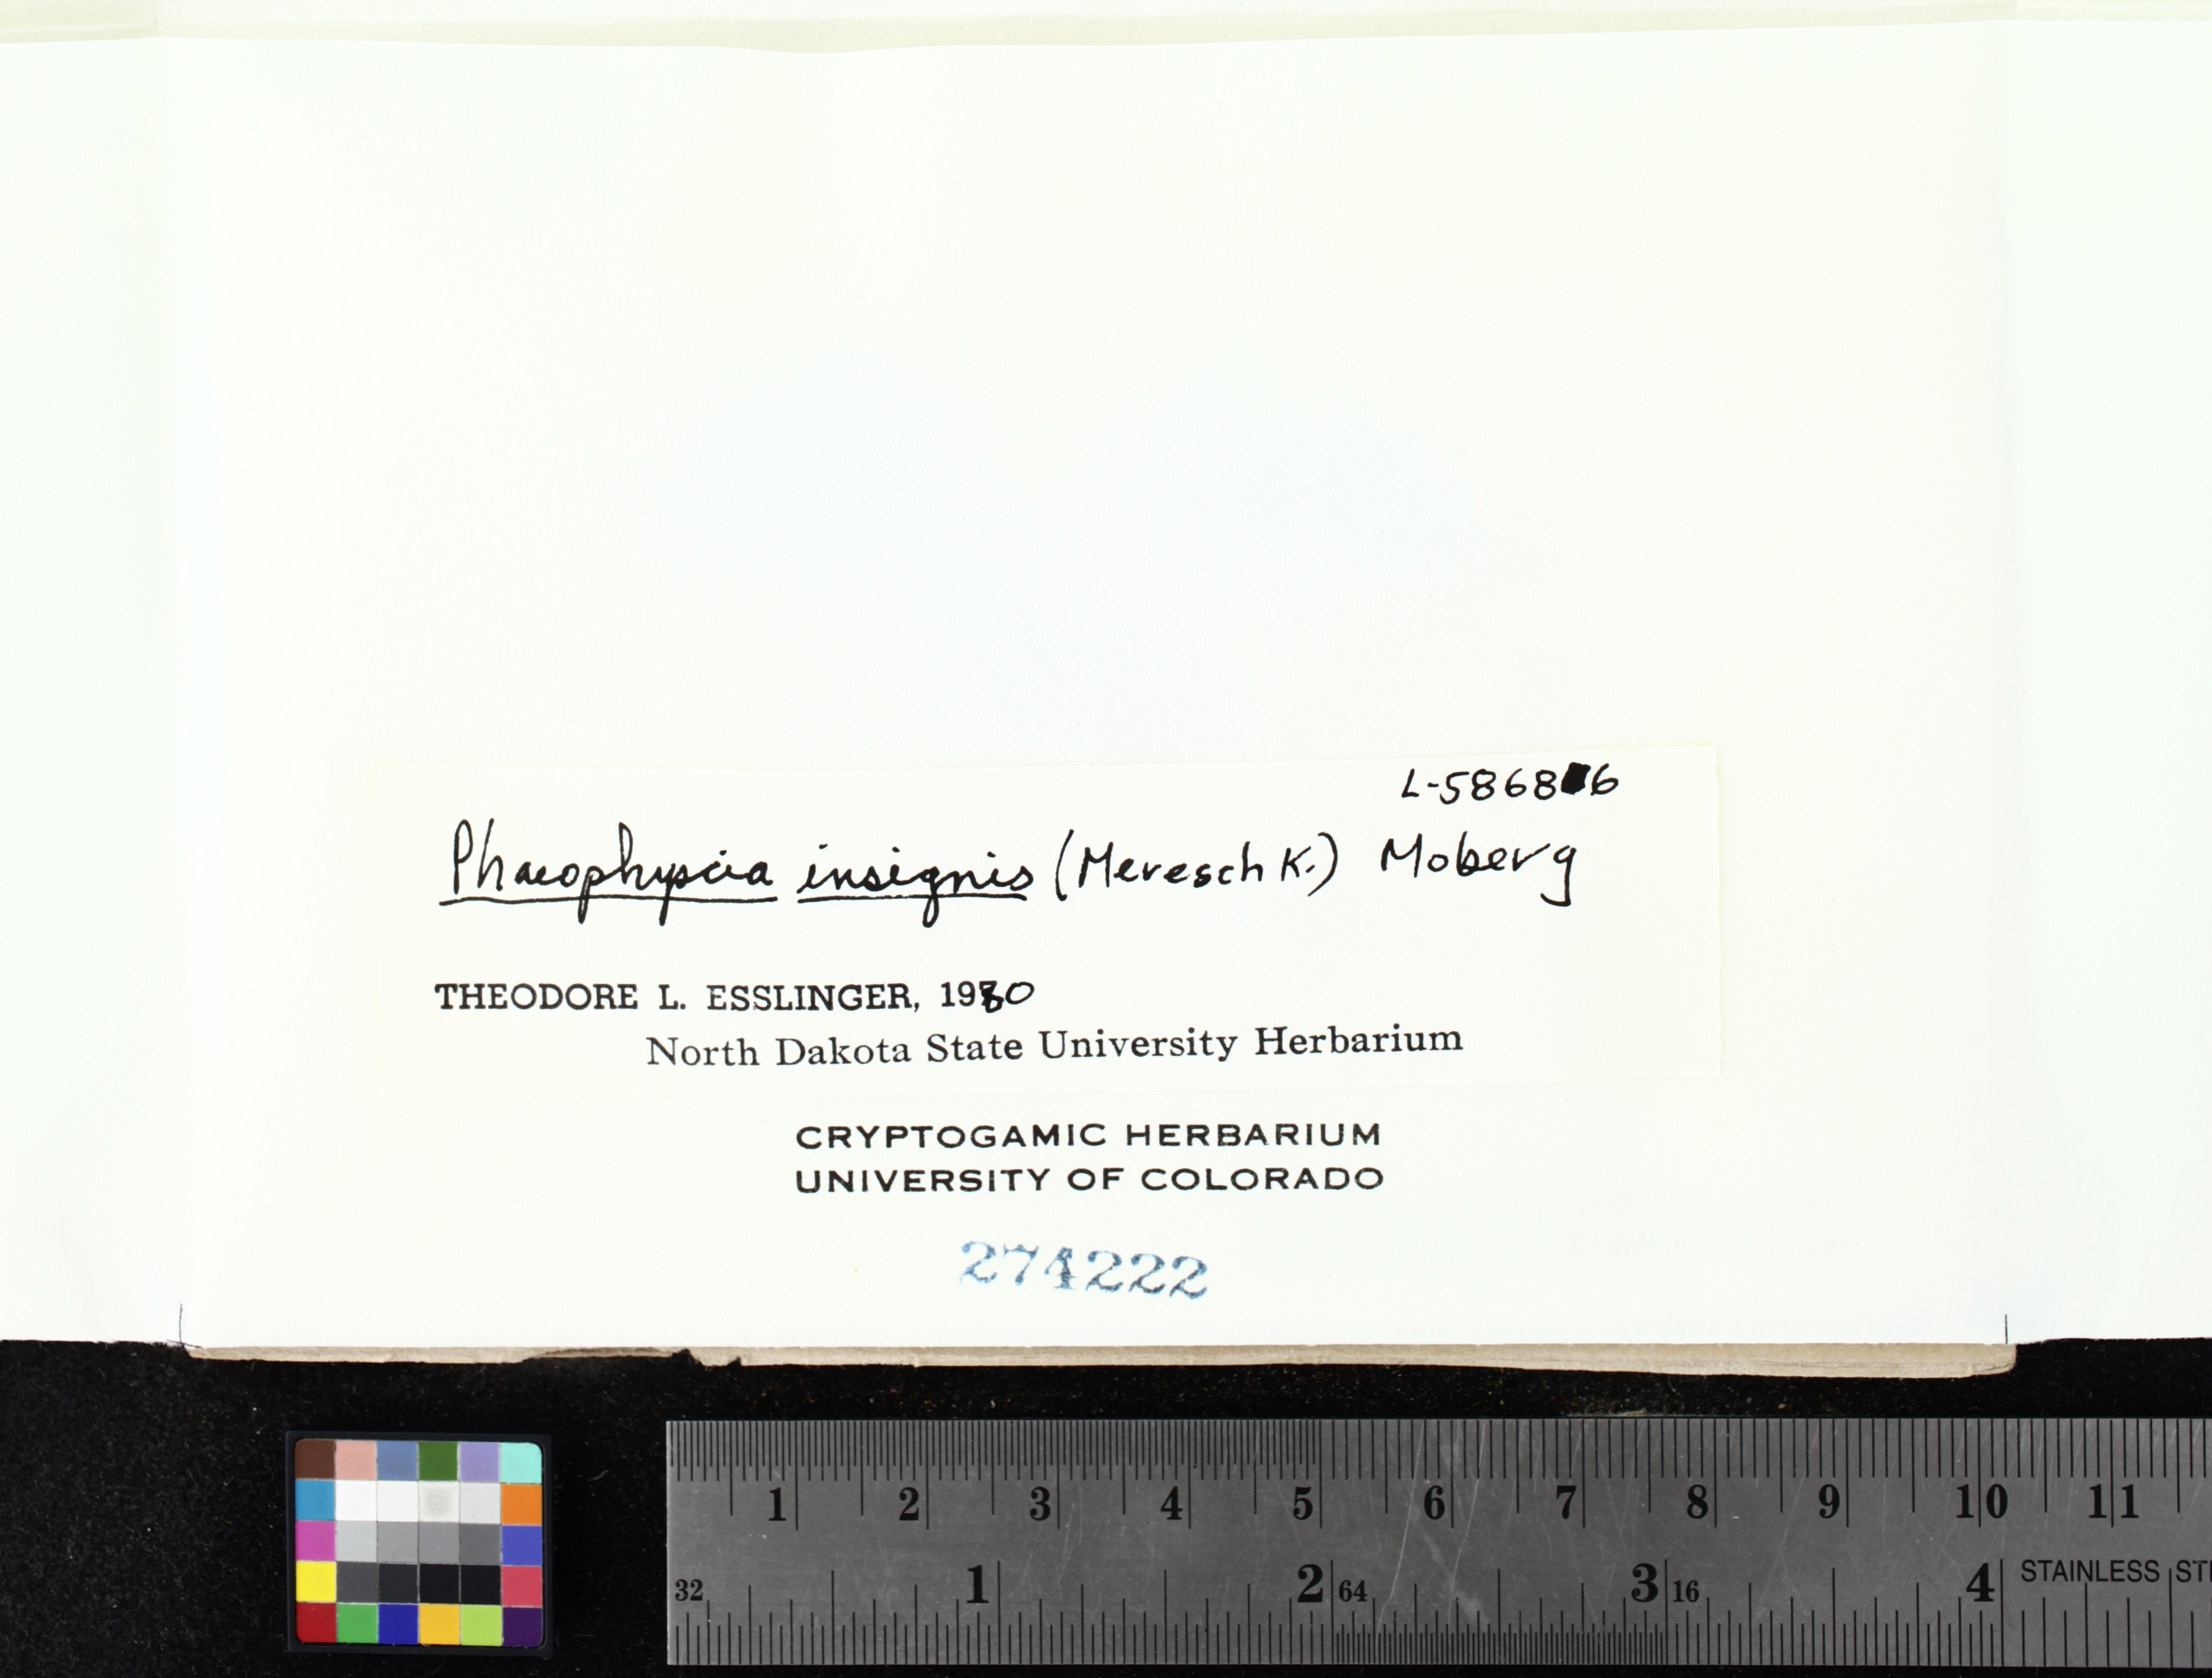 L-58686
Phaeophyscia insignis (Mereschk.) Moberg
THEODORE L. ESSLINGER, 1980
North Dakota State University Herbarium
CRYPTOGAMIC HERBARIUM
UNIVERSITY OF COLORADO
274222
1 2 3 4 5 6 7 8 9 10 11
32 1 2 64 3 16 4 STAINLESS